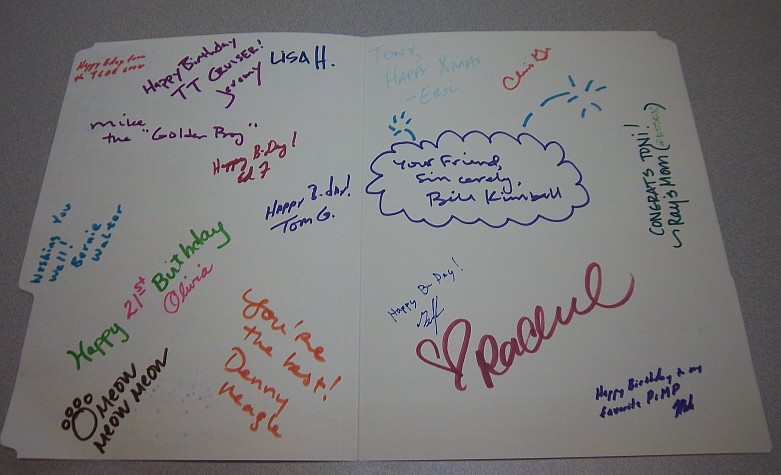 Happy Bday from
the
Happy Birthday
TT CRUISER!
Jeremy
LISA H.
mike
the "Golden Boy"
Happy B-Day!
Ed F
Happy B-day!
Tom G.
Wishing You
Well!
Bernie
Walter
Happy 21st Birthday
Olivia
MEOW
MEOW MEOW
You're
the best!
Denny
Neagle
TONY,
HAPPY XMAS
-ERIC
Chris
Your Friend,
Sincerely,
Bill Kimball
CONGRATS TONI!
Ray's Mom
Happy B-Day!
Rachel
Happy Birthday to my
favorite PiMP